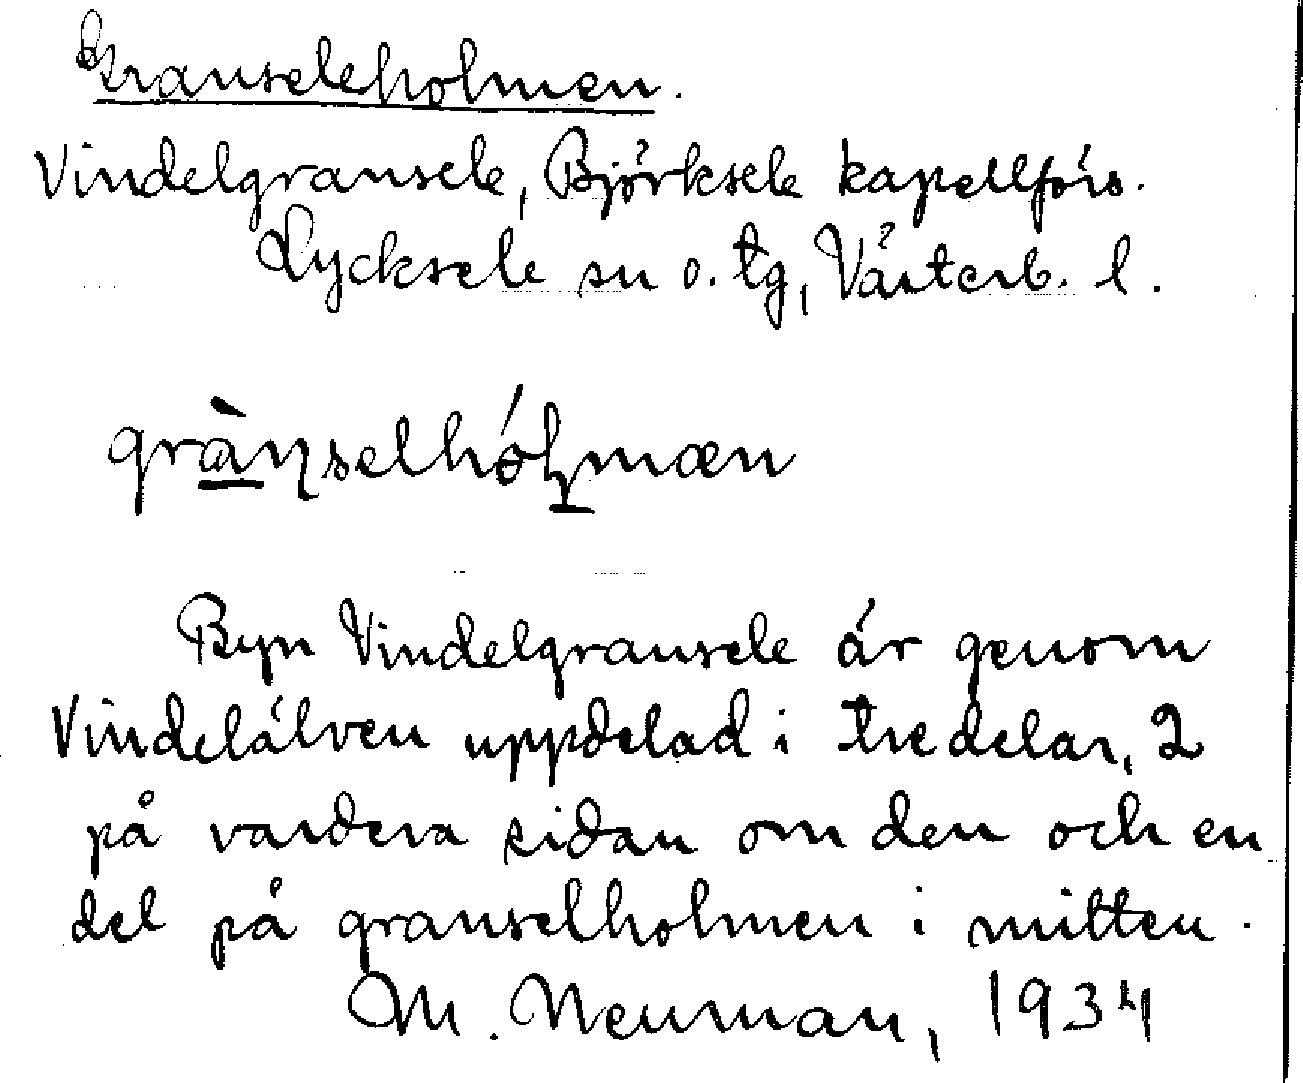 Granseleholmen.
Vindelgransele, Björksele kapellförs.
Lycksele sn o. tg, Västerb. l.
grànselhólmæn
Byn Vindelgransele är genom
Vindelälven uppdelad i tre delar, 2
på vardera sidan om den och en
del på granselholmen i mitten.
M. Neuman, 1934